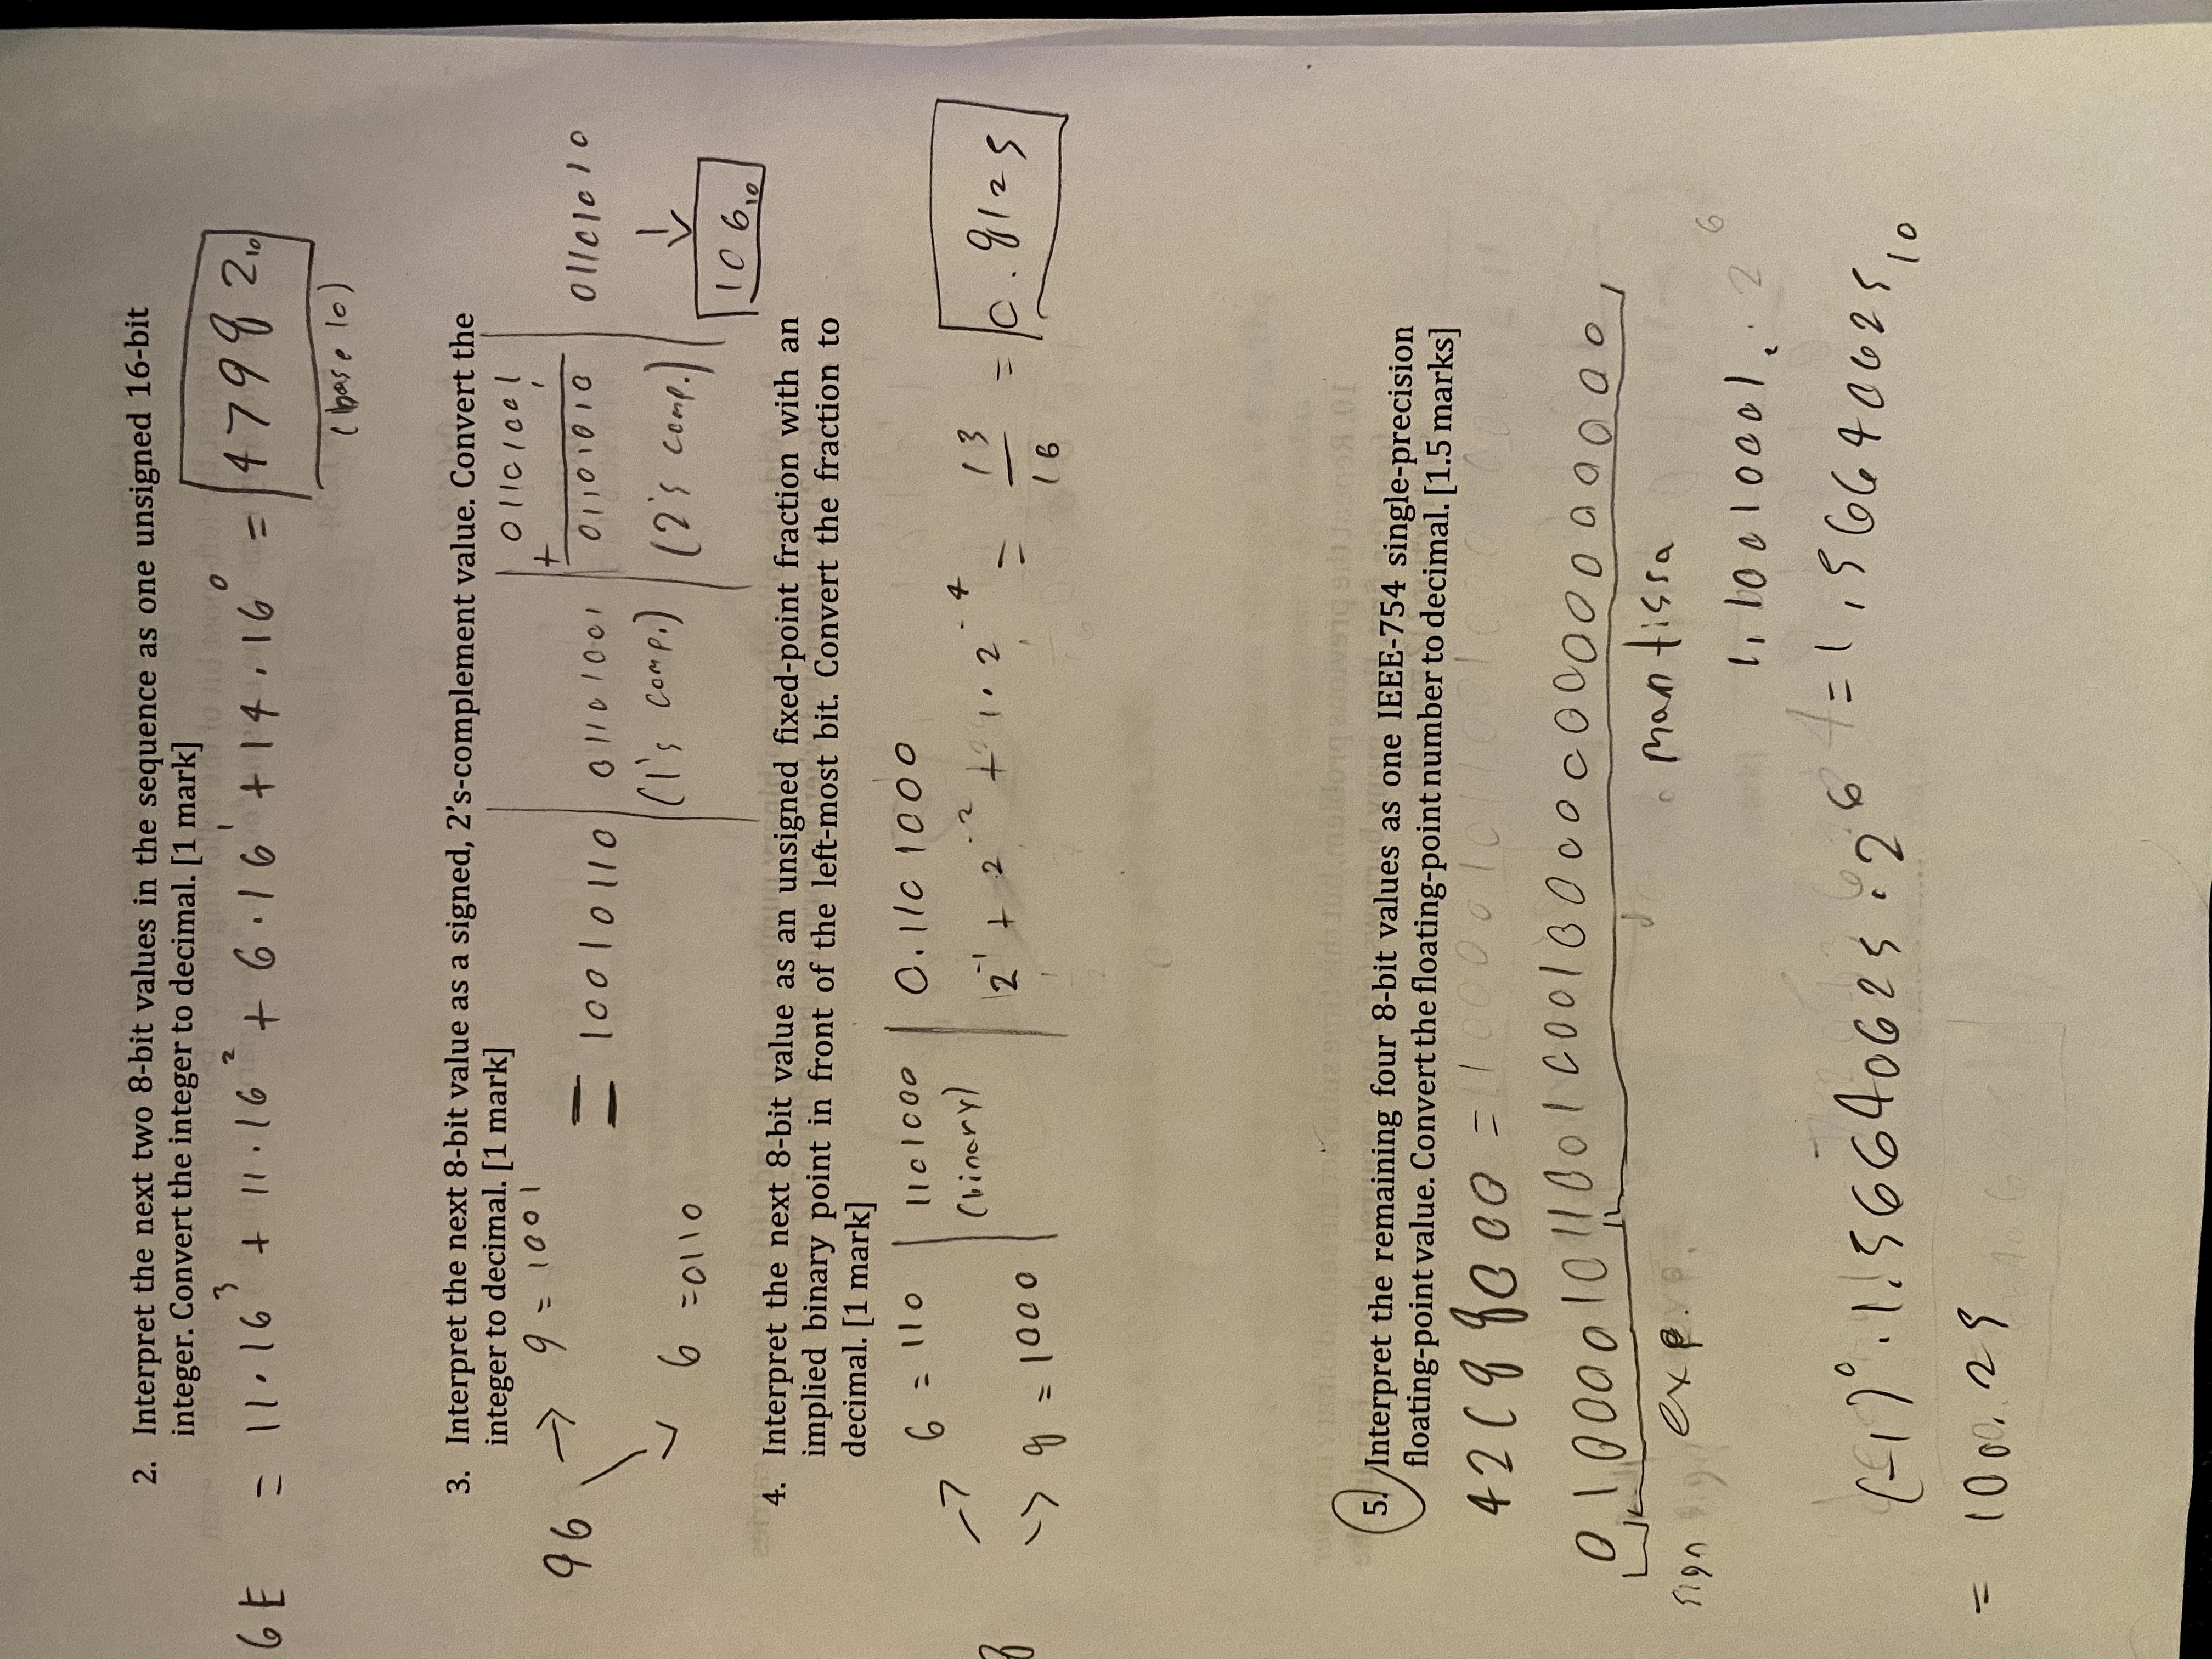 2. Interpret the next two 8-bit values in the sequence as one unsigned 16-bit
integer. Convert the integer to decimal. [1 mark]
6E = 11·16³ + 11·16² + 6·16¹ + 14·16⁰ = 47982₁₀
(base 10)
3. Interpret the next 8-bit value as a signed, 2's-complement value. Convert the
integer to decimal. [1 mark]
96 → 9 = 1001
6 = 0110
= 10010110
01101001
(1's comp.)
01101001
+ 1
01101010
(2's comp.)
01101010
↓
106₁₀
4. Interpret the next 8-bit value as an unsigned fixed-point fraction with an
implied binary point in front of the left-most bit. Convert the fraction to
decimal. [1 mark]
8 → 6 = 110
→ 8 = 1000
1101000
(binary)
0.1101000
2⁻¹ + 2⁻² + 1·2⁻⁴ = 13/16 = 0.8125
5. Interpret the remaining four 8-bit values as one IEEE-754 single-precision
floating-point value. Convert the floating-point number to decimal. [1.5 marks]
42C88000 =
01000010110010001000000000000000
sign exp. mantissa
1.10010001 · 2⁶
(-1)⁰ · 1.56640625 · 2⁶ = 1.56640625₁₀
= 100.25